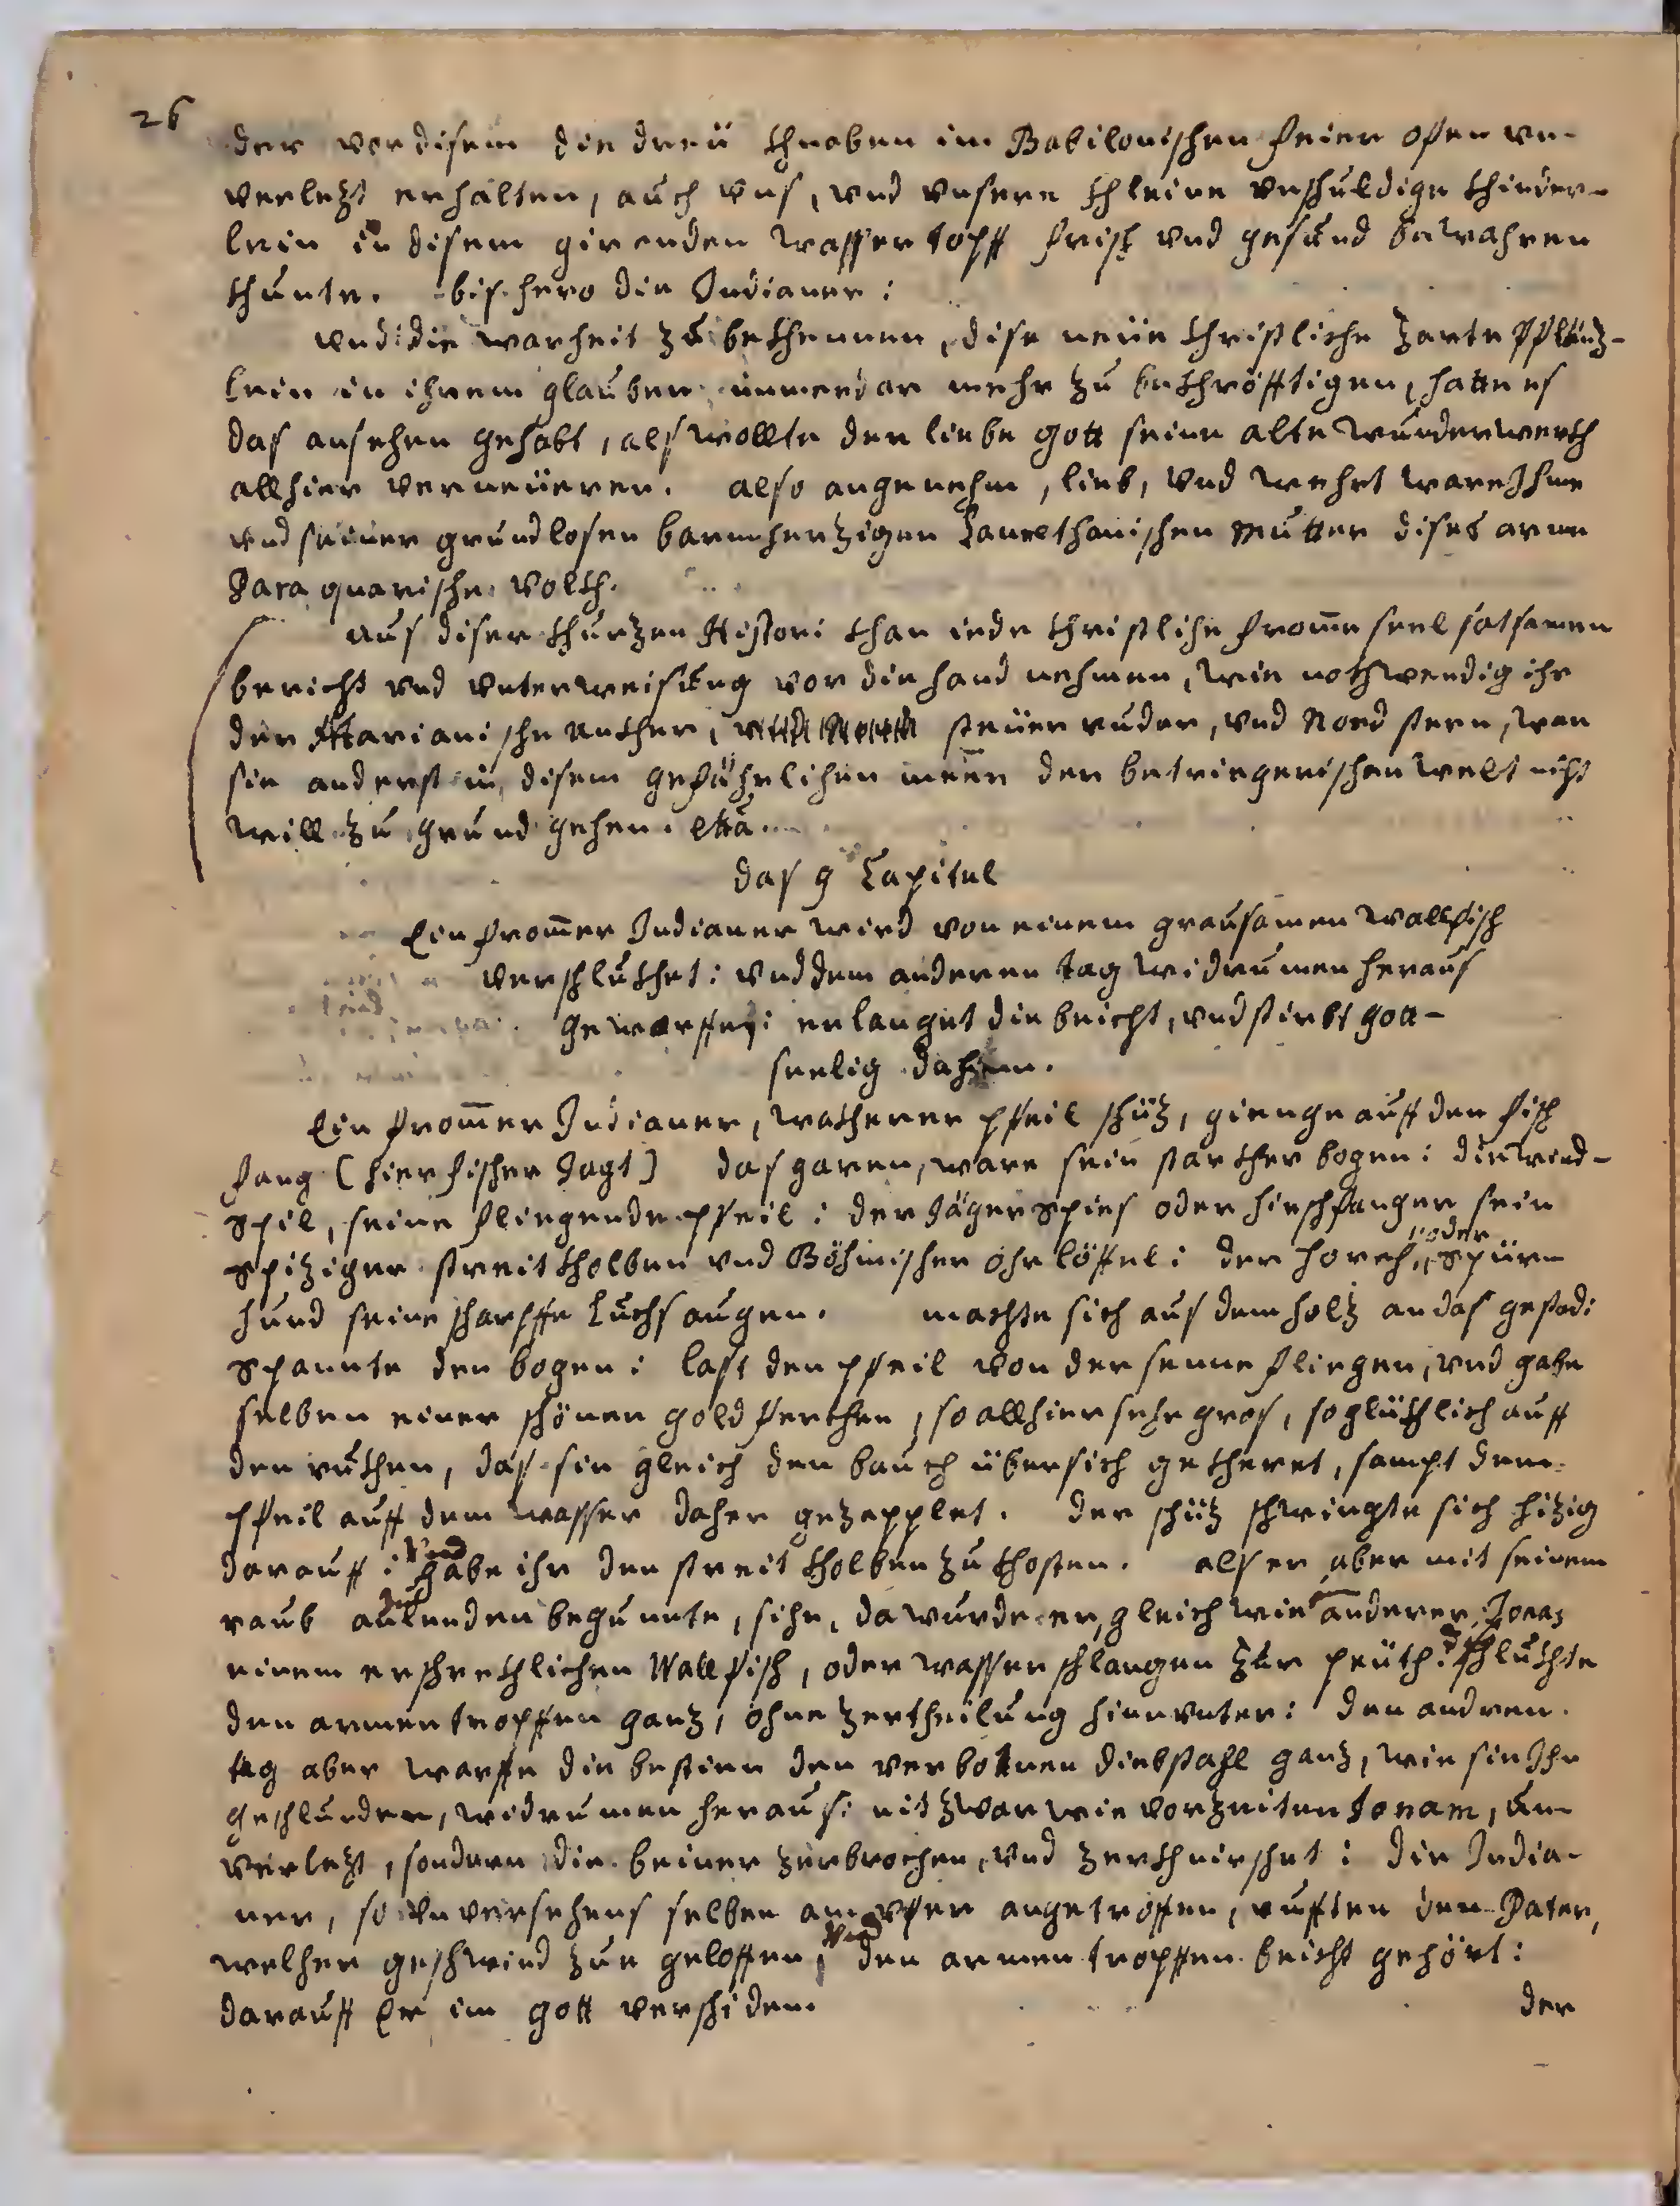 26
der vor disem die dreü khnaben im Babilonischen feier ofen un-
verlezt erhalten, auch uns, und unsere khleine unschuldige khinder-
lein in disem girenden wasser topff frisch und gesund bewahren
khunte. bis hero die Indianer:
und die warheit zu bekhennen, dise neüe christliche zarte Pflänz-
lein in ihrem glauben immerdar mehr zu bekhröfftigen, hatte es
das ansehen gehabt, als wollte der liebe gott seine alte wunderwerkh
allhier verneüeren. also angenehm, lieb, und wehrt ware Ihme
und seiner grundlosen barmherzigen Laurethanischen Mutter dises arme
Paraquarische volkh.
aus diser khurzen Histori khan iede christliche fromme seel satsamen
bericht und unterweisung vor die hand nehmen, wie nothwendig ihr
der Marianische Ankher, steüer ruder, und Nord stern, wan
sie anderst in disem gefährlichen meer der betriegerischen welt nicht
will zu grund gehen. etta.
das 9 Capitel
Ein frommer Indianer wird von einem grausamen Wallfisch
verschlukhet: und dem anderen tag widrumen heraus
geworffen: erlanget die beicht, und stirbt gott-
seelig dahin.
Ein frommer Indianer, wakherer pfeil schüz, gienge auff den fisch
fang [hier fischer Jagt] das garen, ware sein starkher bogen: die wind-
spil, seine fliegende pfeil: der Jäger spies oder hirschfanger sein
spiziger streit kholben und Böhmischer ohr löffel: der horch, oder spür
hund seine scharffe luchs augen. machte sich aus dem holz an das gestad:
spannte den bogen: last den pfeil von der senne fliegen, und gahe
selben einer schönen gold ferchen, so allhier sehr gros, so glükhlich auff
den rukhen, das sie gleich den bauch übersich gekheret, sampt dem
pfeil auff dem wasser daher gezapplet. der schüz schwingte sich hizig
darauff: und gabe ihr den streit kholben zu khosten. als er aber mit seinem
raub anlenden begunnte, sihe, da wurde er, gleich wie anderer Jonas
einem erschrekhlichen Wallfisch, oder wasser schlangen zur peüth: schlukhte
den armen tropffen ganz, ohne zertheilung hinunter: den andren
tag aber warffe die bestien den verbotnen diebstahl ganz, wie sie Ihn
geschlunden, widrumen heraus: nit zwar wie vorzeiten Jonam, un-
verlezt, sondern die beiner zerbrochen, und zerkhnirschet: die India-
ner, so unversehens selben am ufer angetroffen, rufften den Pater,
welher geschwind zue geloffen, und den armen tropffen beicht gehört:
darauff Er im gott verschiden. der